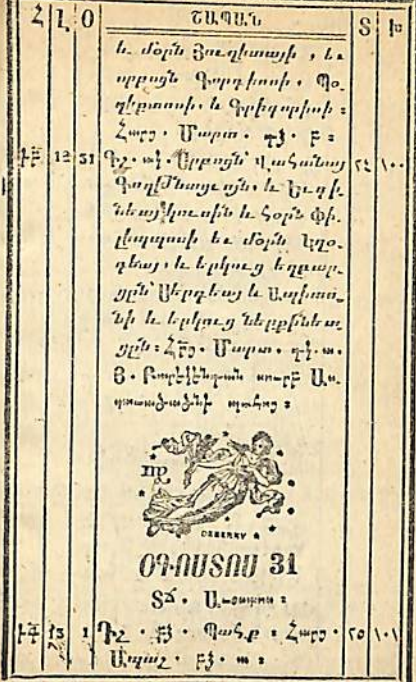 Հ Լ Օ ՇԱՊԱՆ Տ Խ
և մօրն Յուղիտայի, և
սրբոցն Գորդիոսի, Պօ-
ղիքտոսի, և Գրիգորիսի :
Հարց. Մարտ. գձ. բ :
31 Գշ. ակ. Սրբոցն Վահանայ
Գողթնացւոյն, և Եւգի-
նեայ կուսին և հօրն Փի-
լիպպոսի և մօրն Կղօ-
դեայ, և երկուց եղբար-
ցըն՝ Սերգեայ և Ապիտո-
նի և երկուց ներքինեա-
ցըն : Հրց. Մարտ. գկ. ա.
Յ. Բարեկենդան սուրբ Աս-
տուածածնի պահոց :
DEBERNY
ՕԳՈՍՏՈՍ 31
Տճ.
13 1 Դշ. բձ. Պահք : Հարց
բձ. ա :